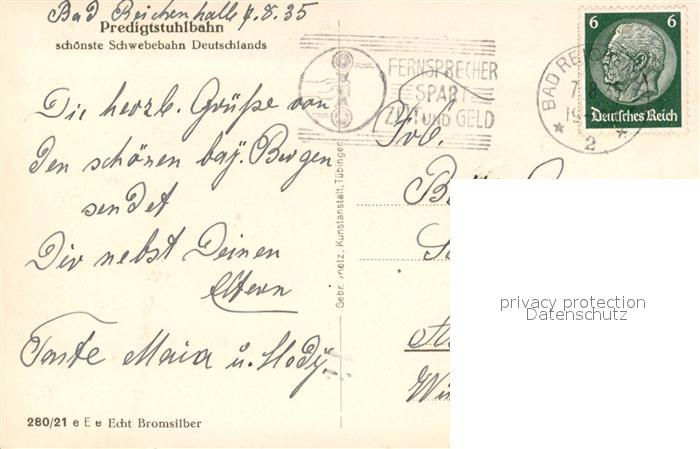 Bad Reichenhall 7.8.35
Predigtstuhlbahn
schönste Schwebebahn Deutschlands
Die herzl. Grüße von
den schönen bay. Bergen
sendet
Dir nebst Deinen
Eltern
Tante Maia u.
280/21 e E e Echt Bromsilber
Gebr. Metz, Kunstanstalt, Tübingen
FERNSPRECHER
SPART
ZEIT UND GELD
BAD REICH
2
6 6
Deutsches Reich
Frl.
privacy protection
Datenschutz